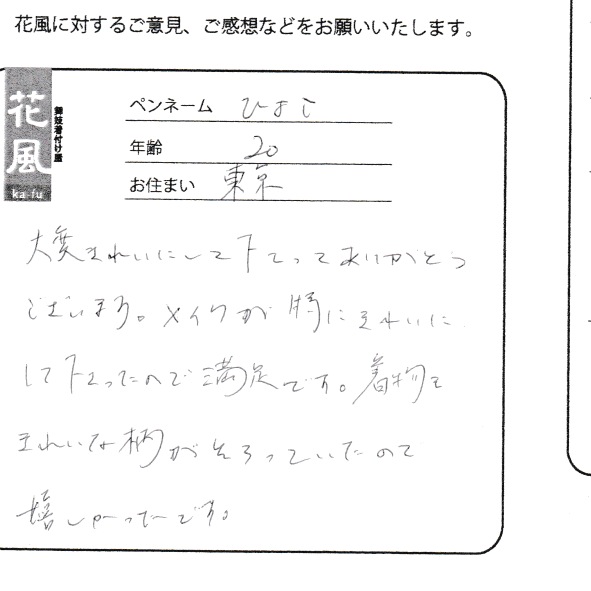 花風に対するご意見、ご感想などをお願いいたします。
花風
舞妓着付け屋
ka-fu
ペンネーム ひよし
年齢 20
お住まい 東京
大変きれいにして下さってありがとう
ございます。メイクが特にきれいに
して下さったので満足です。着物も
きれいな柄がそろっていたので
嬉しかったです。